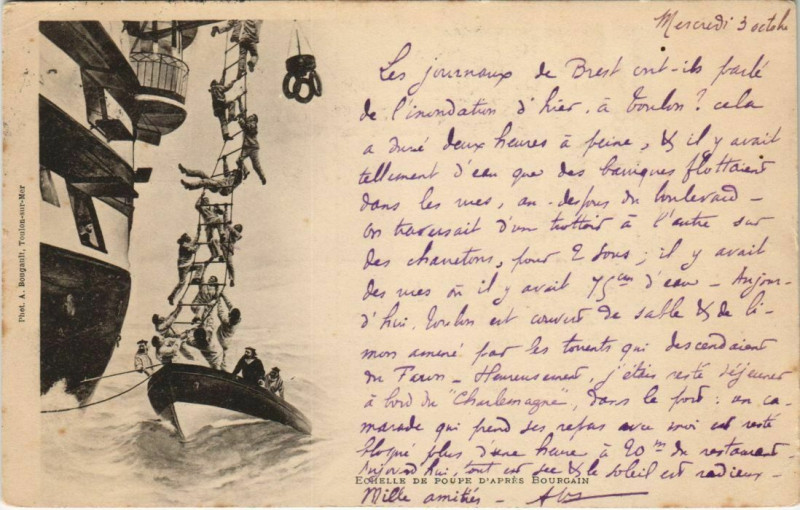 Mercredi 3 octobre
Les journaux de Brest ont-ils parlé
de l'inondation d'hier, à Toulon ? cela
a duré deux heures à peine, & il y avait
tellement d'eau que des barriques flottaient
dans les rues, au-dessous du boulevard –
on traversait d'un trottoir à l'autre sur
des charretons, pour 2 sous ; il y avait
des rues où il y avait 75cm d'eau – Aujour-
d'hui, Toulon est couvert de sable & de li-
mon amené par les torrents qui descendaient
du Faron – Heureusement, j'étais resté déjeuner
à bord du "Charlemagne", dans le port : un ca-
marade qui prend ses repas avec moi est resté
bloqué plus d'une heure à 20m du restaurant –
Aujourd'hui, tout est sec & le soleil est radieux –
Mille amitiés –
ECHELLE DE POUPE D'APRÈS BOURGAIN
Phot. A. Bougault, Toulon-sur-Mer